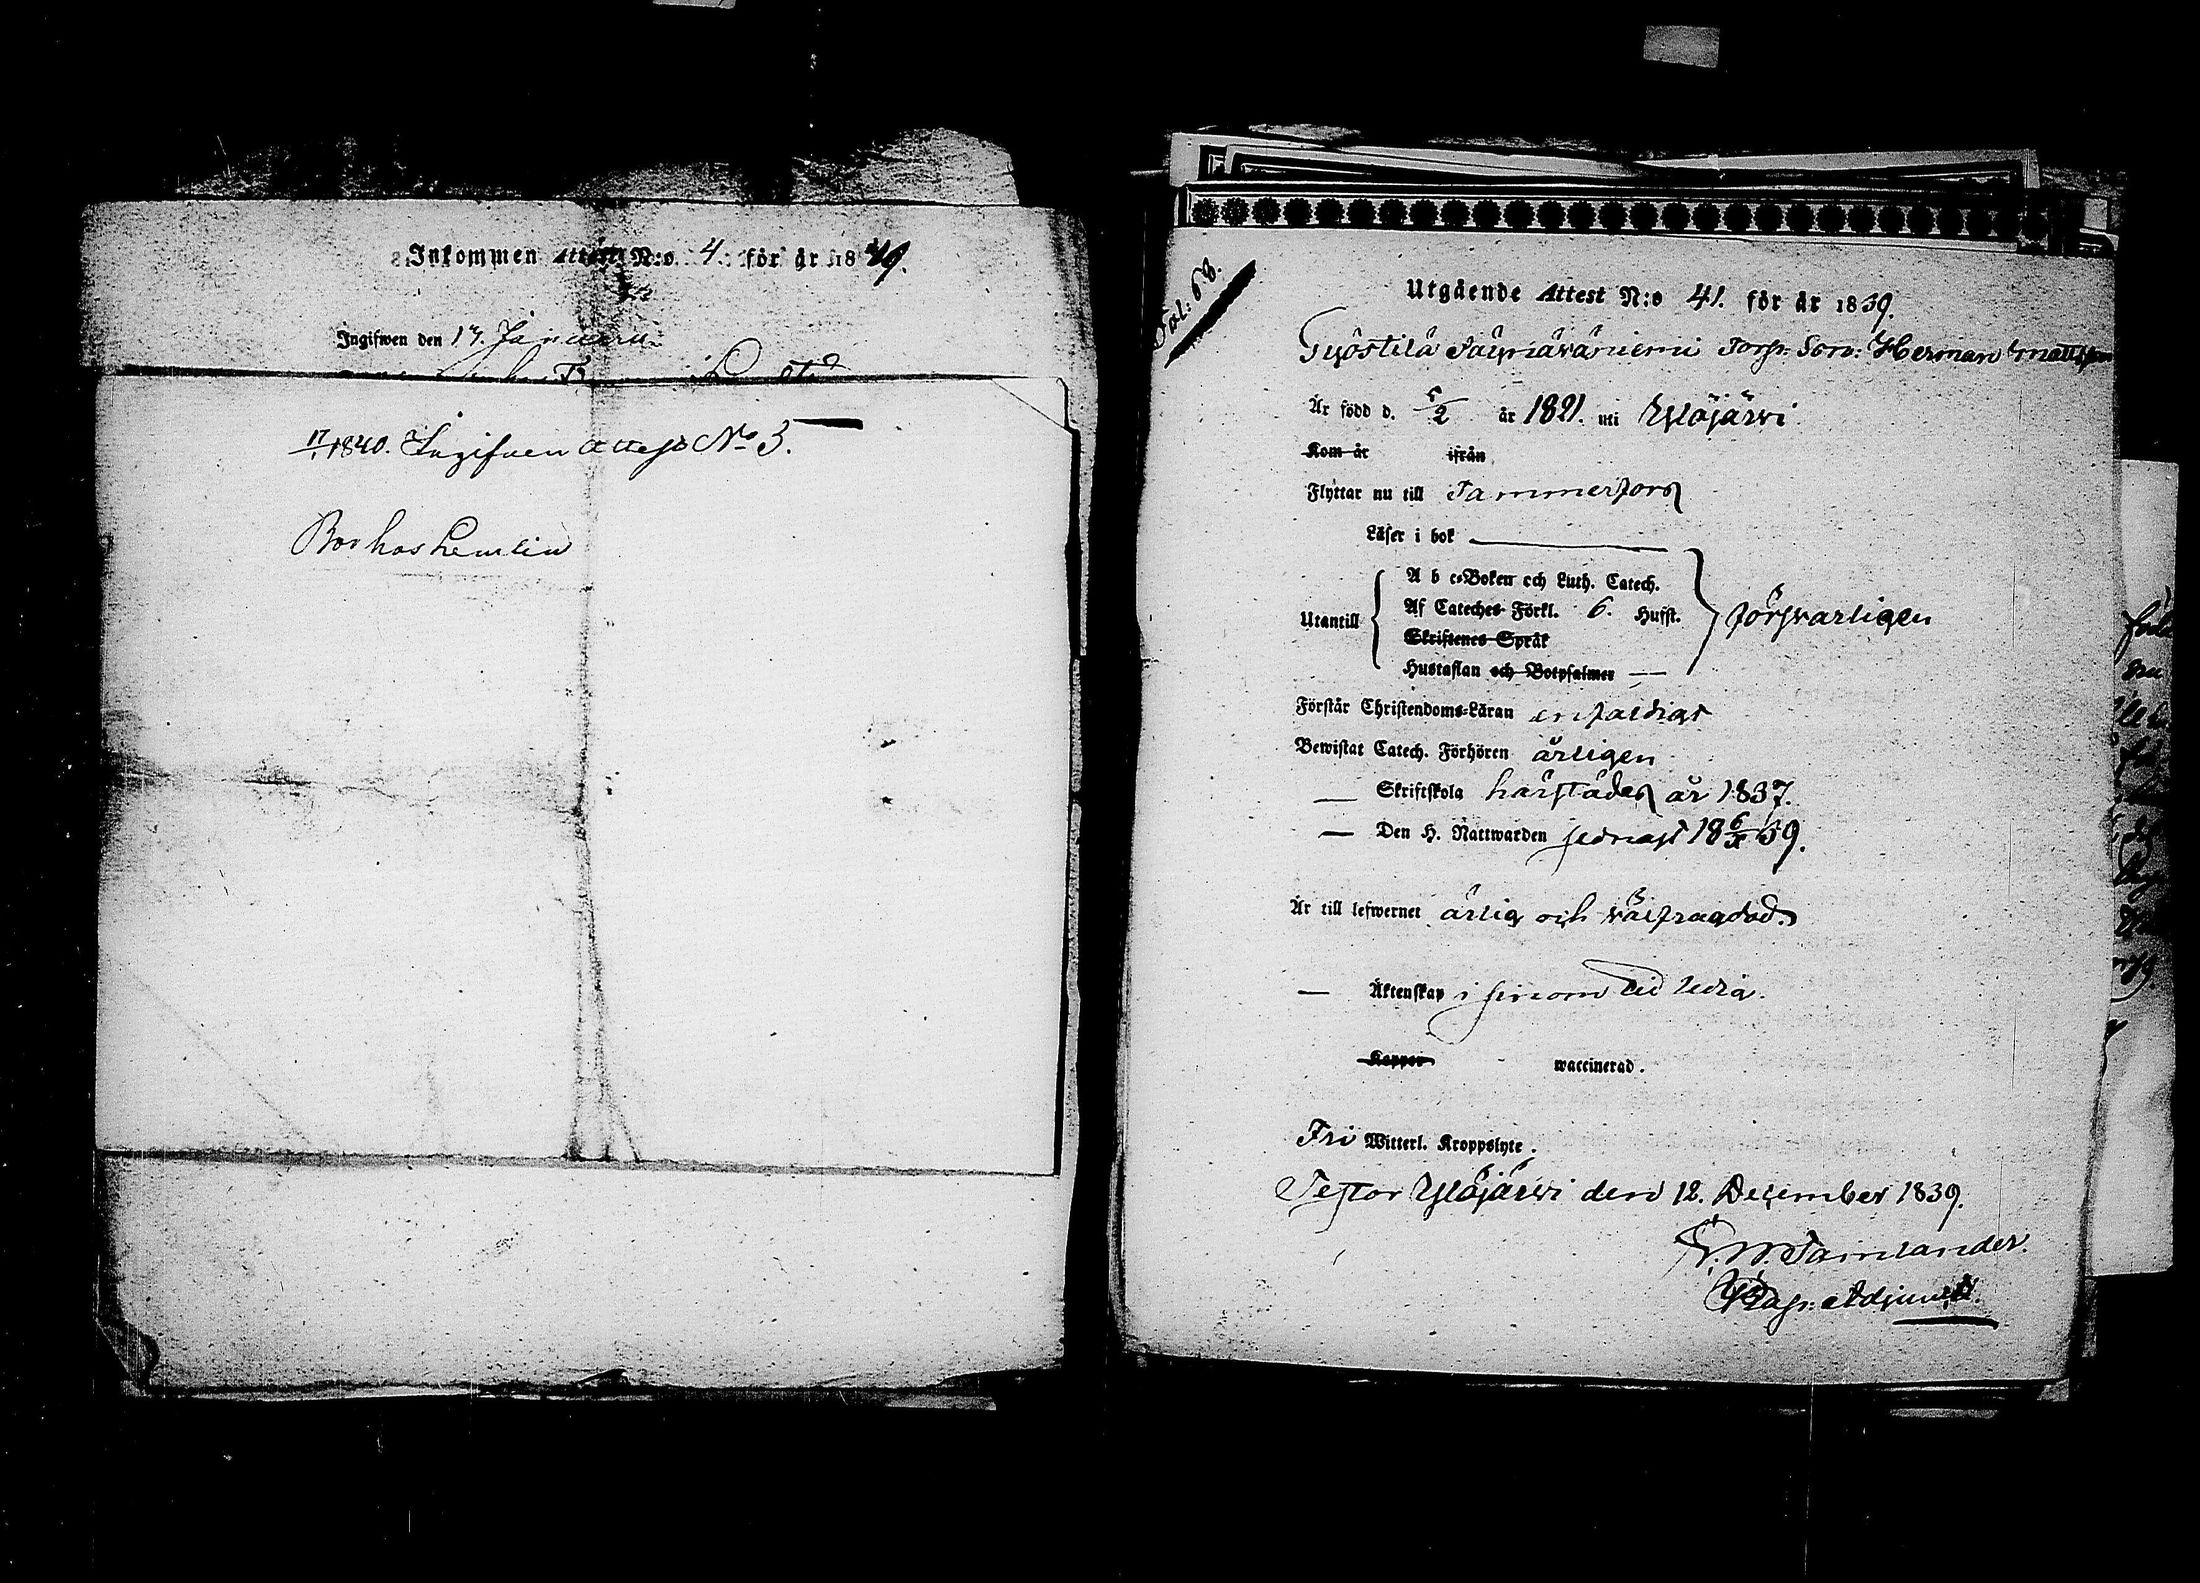 Inkommen Attest N:o 4. för år 1849.
Ingifwen den 17. Januarii
17/1 1840. Ingifven Attest No 3.
Bor hos Lemlin
Fol: 68.
Utgående Attest N:o 41. för år 1839.
Työstilä Torp. Son: Herman Mattsson
Är född d. 5/2 år 1821. uti Ylöjärwi
Kom år ifrån
Flyttar nu till Tammerfors
Läser i bok
A b c-Boken och Luth. Catech.
Utantill Af Cateches Förkl. 6. Hufst. försvarligen
Skriftenes Språk
Hustaflan och Botpsalmer
Förstår Christendoms-Läran enfaldigt
Bewistat Catech. Förhören årligen
— Skriftskola härstädes år 1837.
— Den H. Nattwarden sednast 18 6/X 39.
Är till lefwernet ärlig och välfrägdad.
— Äktenskap i sinom tid ledig.
Koppor waccinerad.
Fri Witterl. Kroppslyte.
Testor Ylöjärwi den 12. December 1839.
Tamlander.
Adjunct.